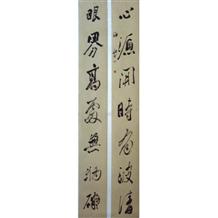 心源開時有波清
眼界高處無物礙